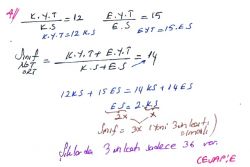 4//
K.Y.T / K.S = 12   E.Y.T / E.S = 15
K.Y.T = 12.K.S   E.Y.T = 15.E.S
Sınıf = K.Y.T + E.Y.T / K.S + E.S = 14
12KS + 15ES = 14KS + 14ES
ES = 2.KS
2x   x
Sınıf = 3x (Yani 3'ün katı
olmalı)
Şıklarda 3'ün katı sadece 36 var.
CEVAP: E